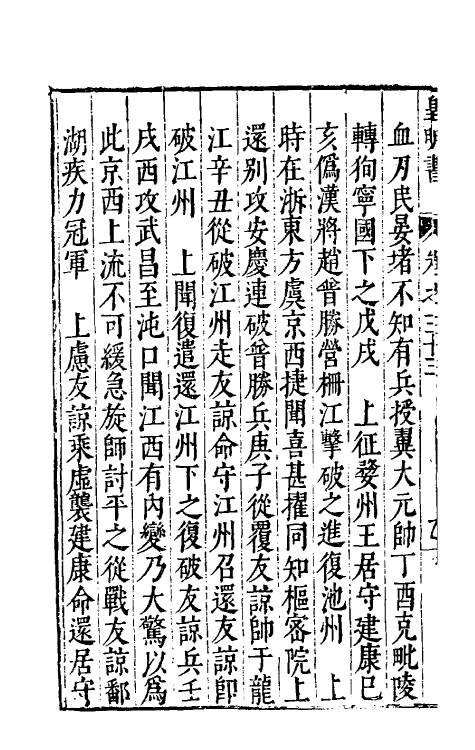 皇明書　卷之三十三
血刃民晏堵不知有兵授翼大元帥丁酉克毗陵
轉狥寧國下之戊戌　上征婺州王居守建康巳
亥僞漢將趙普勝營柵江擊破之進復池州　上
時在浙東方虞京西捷聞喜甚擢同知樞宻院上
還别攻安慶連破普勝兵庚子從覆友諒帥于龍
江辛丑從破江州走友諒命守江州召還友諒卽
破江州　上聞復遣還江州下之復破友諒兵壬
戌西攻武昌至沌口聞江西有內變乃大驚以爲
此京西上流不可緩急旋師討平之從戰友諒鄱
湖疾力冠軍　上慮友諒乘虛襲建康命還居守